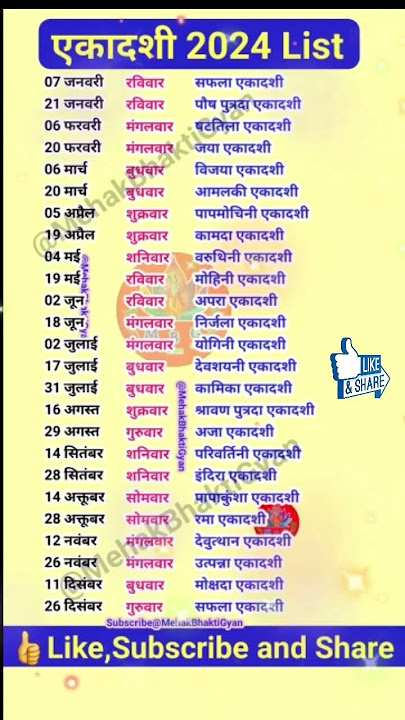 एकादशी 2024 List
07 जनवरी रविवार सफला एकादशी
21 जनवरी रविवार पौष पुत्रदा एकादशी
06 फरवरी मंगलवार षटतिला एकादशी
20 फरवरी मंगलवार जया एकादशी
06 मार्च बुधवार विजया एकादशी
20 मार्च बुधवार आमलकी एकादशी
05 अप्रैल शुक्रवार पापमोचिनी एकादशी
19 अप्रैल शुक्रवार कामदा एकादशी
04 मई शनिवार वरुथिनी एकादशी
19 मई रविवार मोहिनी एकादशी
02 जून रविवार अपरा एकादशी
18 जून मंगलवार निर्जला एकादशी
02 जुलाई मंगलवार योगिनी एकादशी
17 जुलाई बुधवार देवशयनी एकादशी
31 जुलाई बुधवार कामिका एकादशी
16 अगस्त शुक्रवार श्रावण पुत्रदा एकादशी
29 अगस्त गुरुवार अजा एकादशी
14 सितंबर शनिवार परिवर्तिनी एकादशी
28 सितंबर शनिवार इंदिरा एकादशी
14 अक्तूबर सोमवार पापाकुंशा एकादशी
28 अक्तूबर सोमवार रमा एकादशी
12 नवंबर मंगलवार देवुत्थान एकादशी
26 नवंबर मंगलवार उत्पन्ना एकादशी
11 दिसंबर बुधवार मोक्षदा एकादशी
26 दिसंबर गुरुवार सफला एकादशी
LIKE
& SHARE
@MehakBhaktiGyan
@MehakBhaktiGyan
@MehakBhaktiGyan
Subscribe@MehakBhaktiGyan
Like,Subscribe and Share